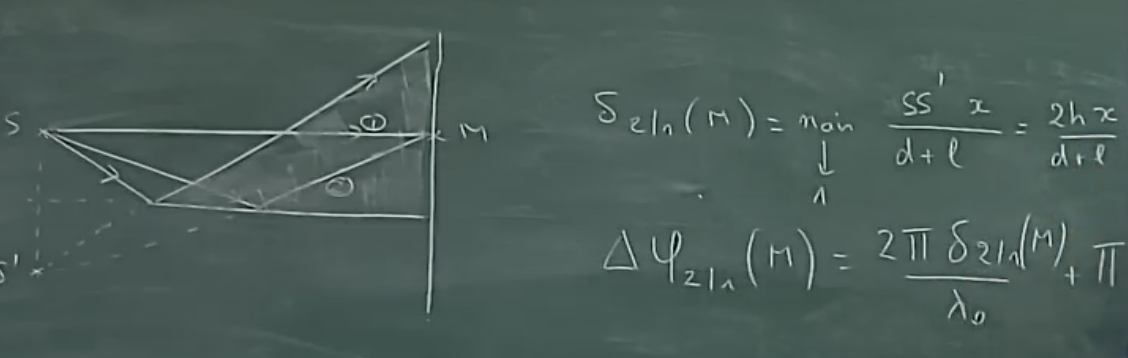 S
①
M
②
S'
δ₂/₁(M) = n_air SS' x / (d+l) = 2hx / (d+l)
↓
1
Δφ₂/₁(M) = 2π δ₂/₁(M) / λ₀ + π